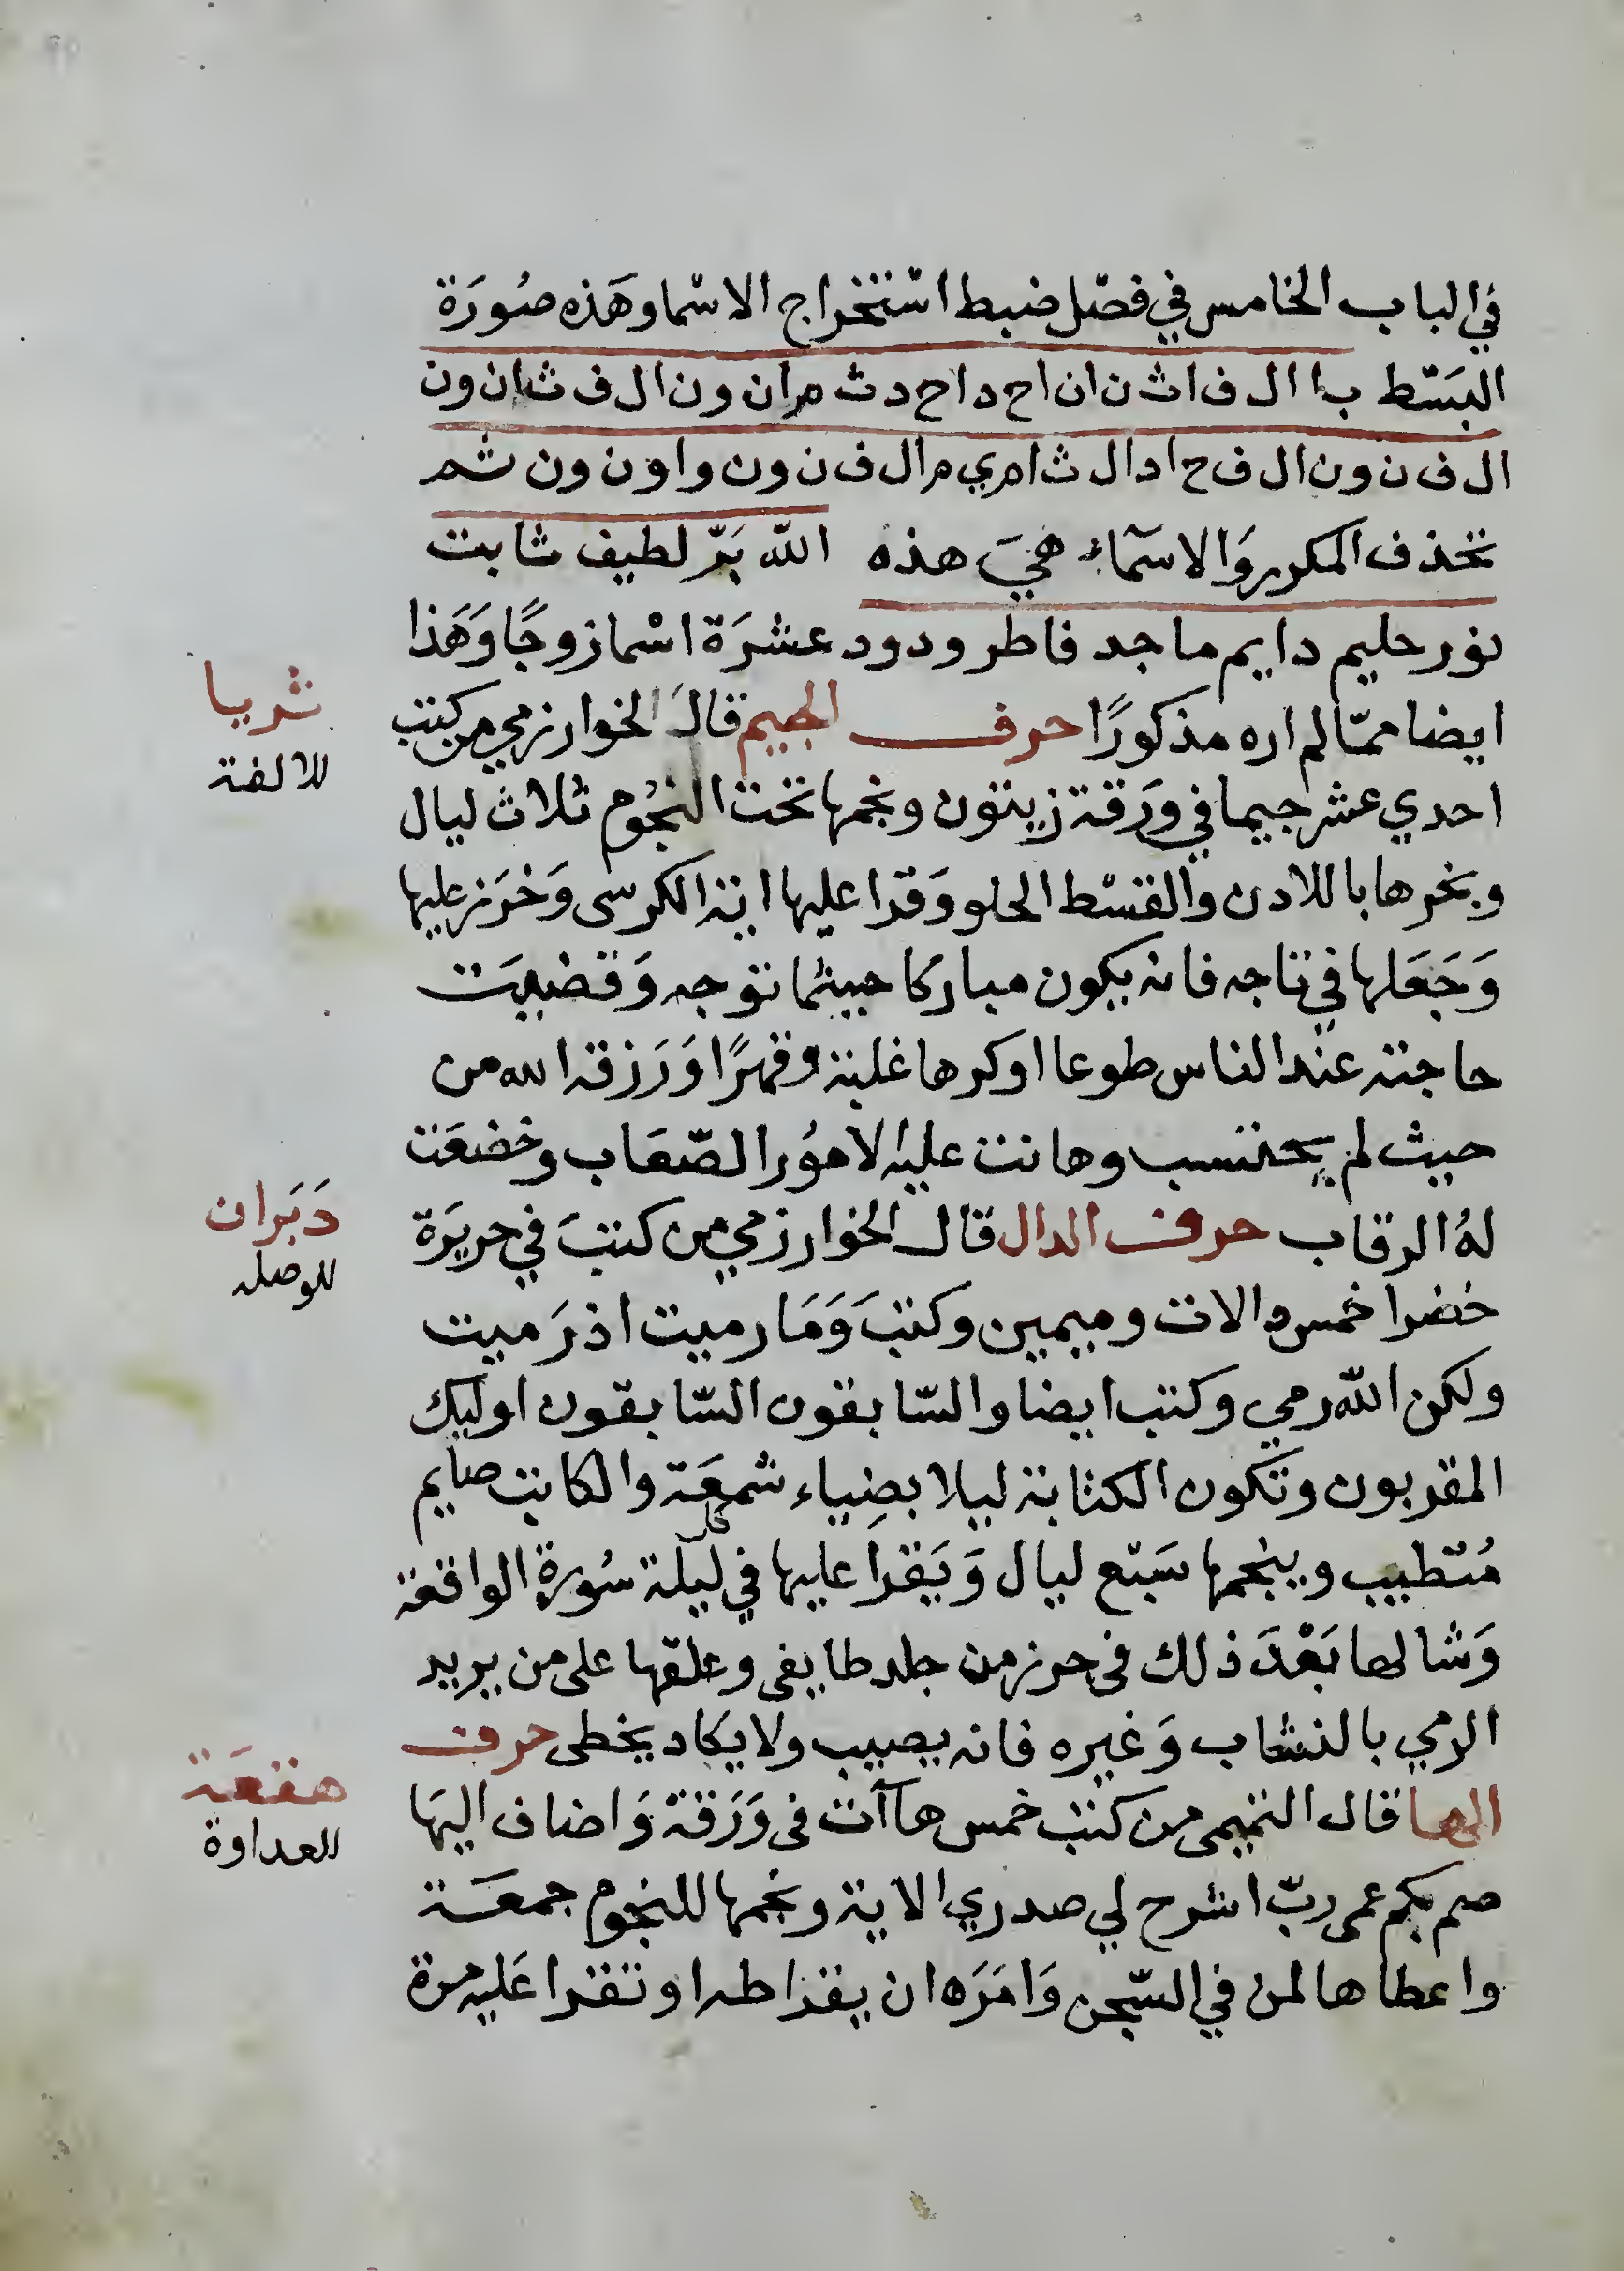 في الباب الخامس في فصل ضبط استخراج الاسما وهذه صورة
البسط ب ا ا ل ف ا ث ن ا ن ا ح د ا ح د ث م ا ن و ن ا ل ف ث ا ن و ن
ا ل ف ن و ن ا ل ف ح ا د ا ل ث ا م ي م ا ل ف ن و ن و ا و ن و ن ثم
تحذف المكرر والاسماء هي هذه الله بر لطيف ثابت
نور حليم دايم ماجد فاطر ودود عشرة اسما زوجًا وهذا
ايضا ممّا لم اره مذكورًا حرف الجيم قال الخوارزمي من كتب
احدي عشر جيما في ورقة زيتون ونجمها تحت النجوم ثلاث ليال
وبخرها باللادن والقسط الحلو وقرا عليها اية الكرسى وخرز عليها
وجعلها في تاجه فانه يكون مباركا حيثما توجه وقضيت
حاجته عند الناس طوعا او كرها غلبة وقهرًا ورزقه الله من
حيث لم يحتسب وهانت عليه الامور الصّعاب وخضعت
له الرقاب حرف الدال قال الخوارزمي من كتب في حريرة
خضرا خمس دالات وميمين وكتب وما رميت اذ رميت
ولكن الله رمي وكتب ايضا والسّابقون السّابقون اوليك
المقربون وتكون الكتابة ليلا بضياء شمعة والكاتب صايم
متطيب وينجمها سبع ليال ويقرا عليها في كل ليلة سورة الواقعة
وشالها بعد ذلك فى حرز من جلد طايفى وعلقها على من يريد
الرمي بالنشاب وغيره فانه يصيب ولا يكاد يخطى حرف
الها قال التميمى من كتب خمس هاآت فى ورقة واضاف اليها
صم بكم عمى ربّ اشرح لي صدري الاية ونجمها للنجوم جمعة
واعطاها لمن في السّجن وامره ان يقرا طه او تقرا عليه مرة
ثريا
للالفة
دبران
للوصله
هقعة
للعداوة